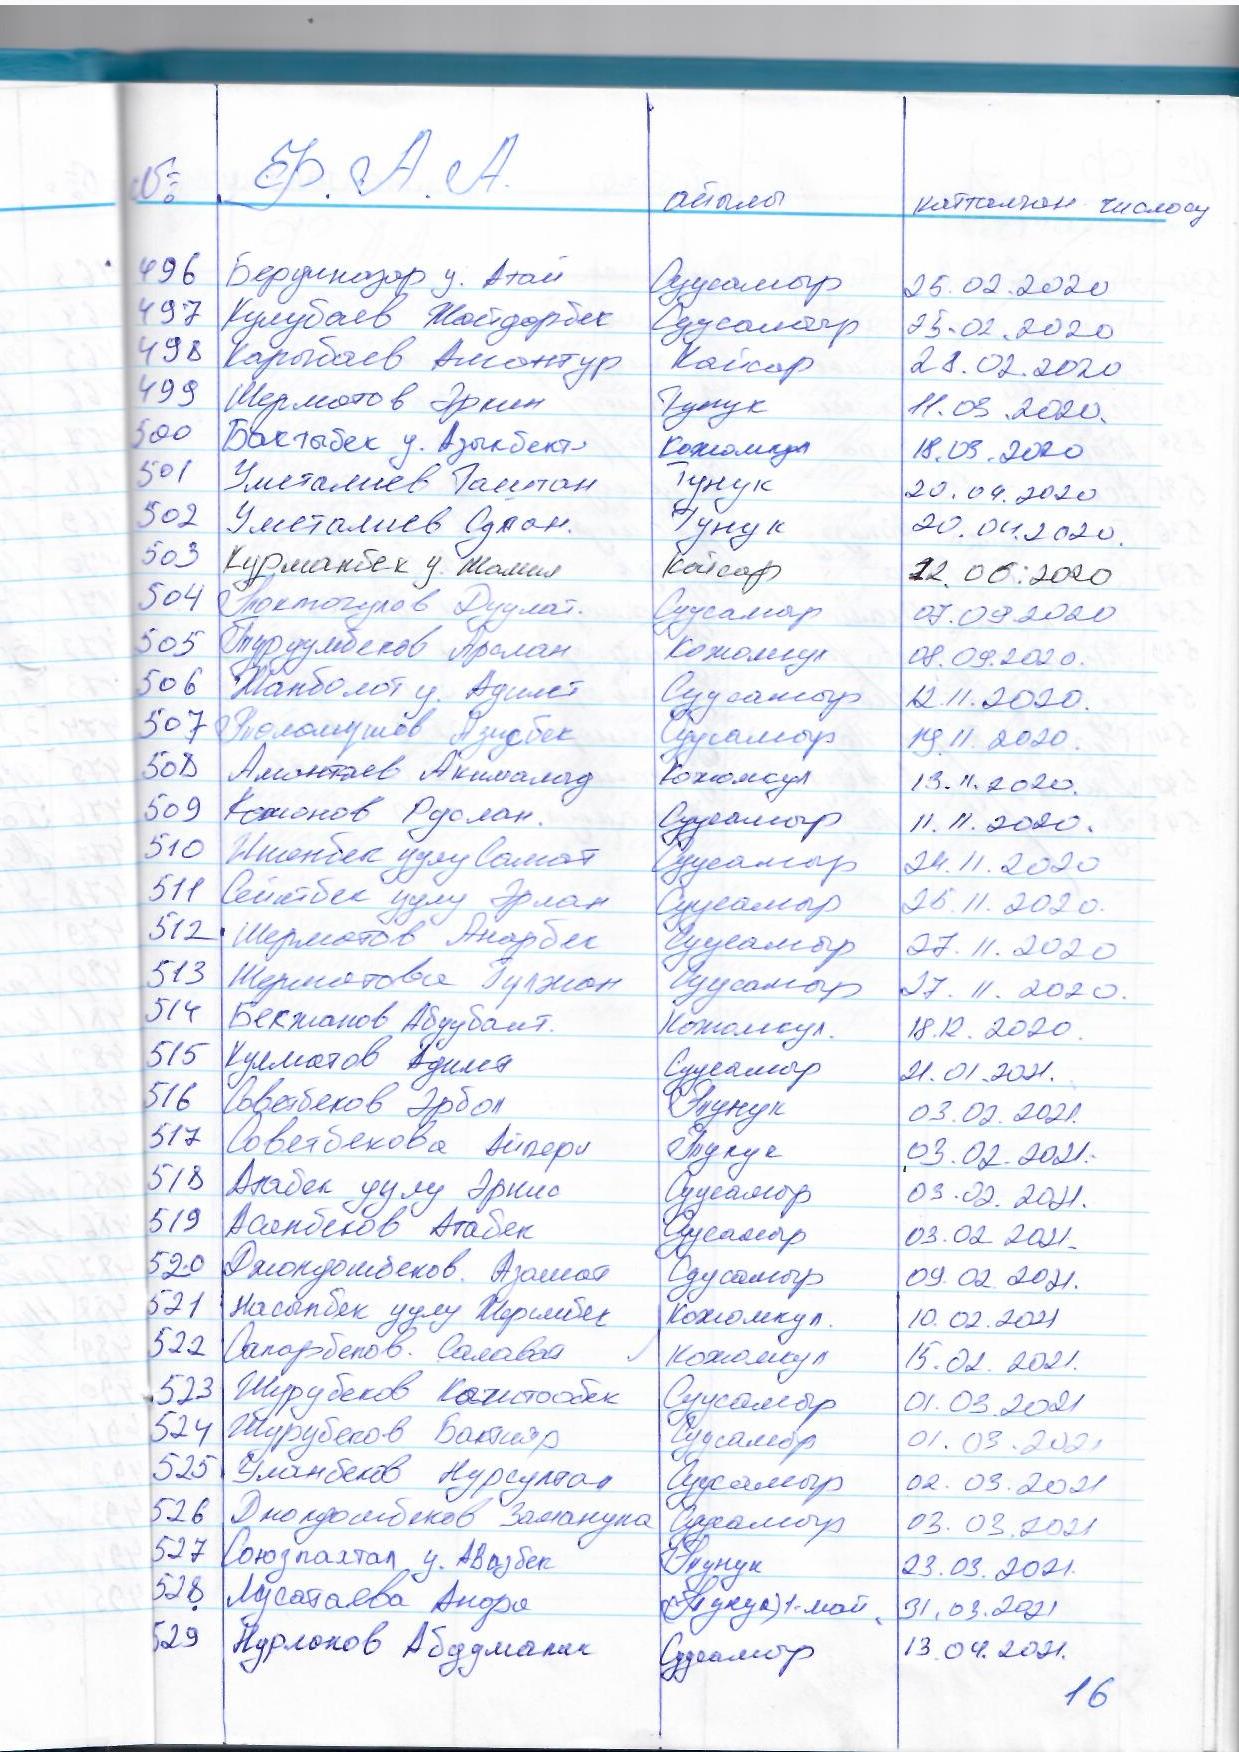 № Ф. А. А. айылы катталган числосу
496 Бердиназар у. Атай Суусамыр 25.02.2020
497 Кулубаев Жайдарбек Суусамыр 25.02.2020
498 Карыбаев Амантур Кайсар 28.02.2020
499 Шерматов Эркин Тунук 11.03.2020.
500 Бактыбек у. Азыкбек Кожомкул 18.03.2020
501 Уметалиев Таштан Тунук 20.04.2020
502 Уметалиев Тунук 20.04.2020.
503 Курманбек у. Кайсар 22.06.2020
504 Токтогулов Дуулат. Суусамыр 07.09.2020
505 Турдумбеков Арслан Кожомкул 08.09.2020.
506 Жанболот у. Адилет Суусамыр 12.11.2020.
507 Толомушов Азизбек Суусамыр 19.11.2020.
508 Амантаев Акималы Кожомкул 13.11.2020.
509 Кожонов Руслан. Суусамыр 11.11.2020.
510 Ишенбек уулу Самат Суусамыр 24.11.2020
511 Сейитбек уулу Эрлан Суусамыр 25.11.2020.
512 Шерматов Анарбек Суусамыр 27.11.2020
513 Шерматова Гулжан Суусамыр 27.11.2020.
514 Бекжанов Абдубаит. Кожомкул. 18.12.2020.
515 Кулматов Адилет Суусамыр 21.01.2021.
516 Советбеков Эрбол Тунук 03.02.2021.
517 Советбекова Айпери Тунук 03.02.2021.
518 Атабек уулу Эрнис Суусамыр 03.02.2021.
519 Асанбеков Атабек Суусамыр 03.02.2021.
520 Джолдошбеков. Азамат Суусамыр 09.02.2021.
521 Насыпбек уулу Жоромбек Кожомкул. 10.02.2021
522 Сапарбеков. Салават Кожомкул 15.02.2021.
523 Шурубеков Суусамыр 01.03.2021
524 Шурубеков Бактияр Суусамыр 01.03.2021
525 Уланбеков Нурсултан Суусамыр 02.03.2021
526 Джолдошбеков Суусамыр 03.03.2021
527 Союзпахтал у. Авазбек Тунук 23.03.2021.
528 Мусатаева Анара (Тунук) 1-май 31.03.2021
529 Нурланов Абдумалик Суусамыр 13.04.2021.
16